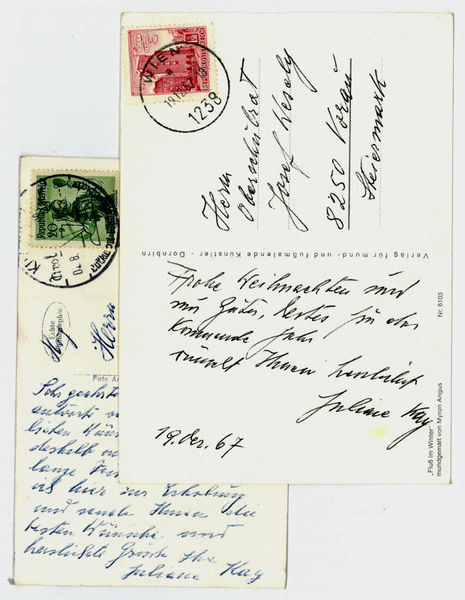 WIEN
19.12.67-18
1238
REPUBLIK ÖSTERREICH
Herrn
Oberschulrat
Josef Wesely
8250 Vorau
Steiermark
Verlag für mund- und fußmalende Künstler - Dornbirn
Frohe Weihnachten und
nur Gutes, Bestes für das
Kommende Jahr
wünscht Ihnen herzlichst
Juliane Kay
19. Dez. 67
Nr. 6103
„Fluß im Winter“
mundgemalt von Myron Angus
Republik Österreich
Tirol
Echte
Photographie
Herrn
Foto
Sehr geehrter
antworte
lichen
deshalb
lange
ich hier zur Erholung
und sende Ihnen die
besten Wünsche und
herzlichste Grüße Ihre
Juliane Kay